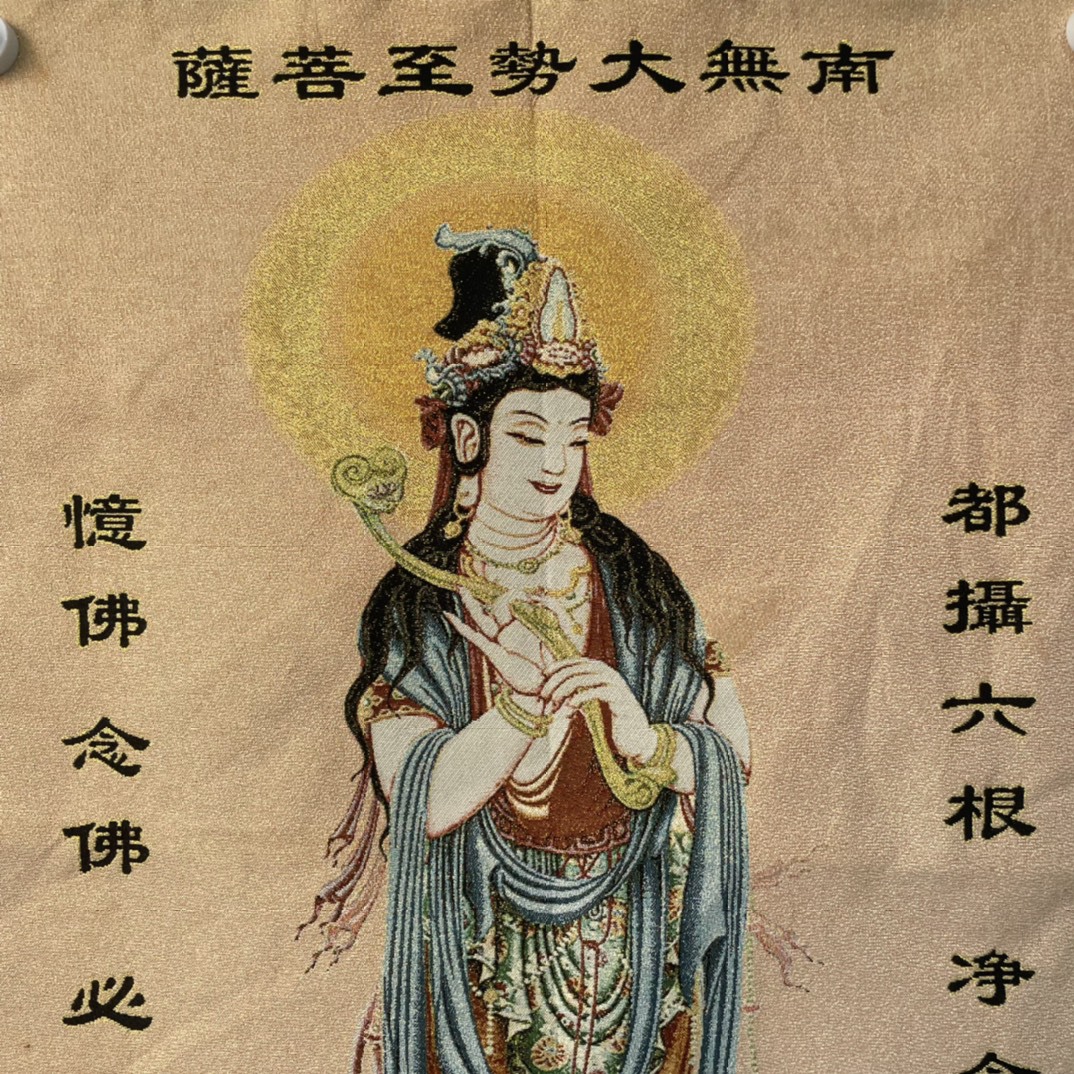 南無大勢至菩薩
都攝六根净
憶佛念佛必